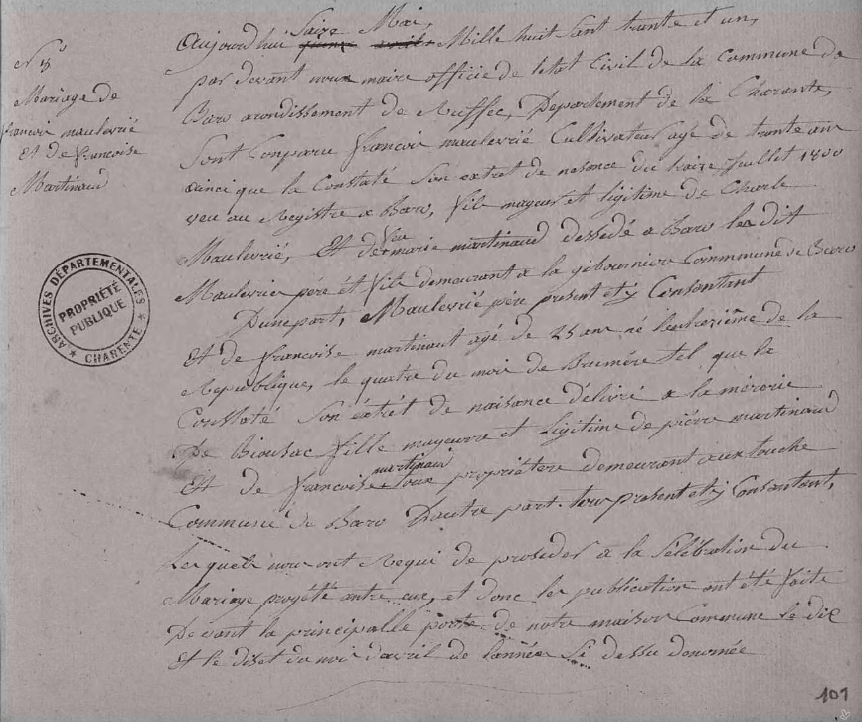 N° 3
Mariage de
francois maulevrié
Et de francoise
Martinaud
Aujourdhui Saize Mai, Mille huit Sant trante et un,
par devant nous maire officié de letat Civil de la Commune de
Baro arondissement de Ruffec, Departement de la Charante,
Sont Conparu francois maulevrié Cultivateur agé de trante an
ainci que la Constaté Son extret de nesance du traize Juillet 1800
veu au Registre a Baro, fils mageur et legitime de Charle
Maulevrié, Et de feu marie martinaud dessedé a Baro les dit
Maulevrier pére et fils demeurant a la gibourniere Commune de Baro
Dune part, Maulevrié pére present et y Consantant
Et de francoise martinaut agé de 25 an né lentreziéme de la
Republique, le quatre du moi de Brumére tel que le
Constaté Son éxtrét de naisance délivré a la mérerie
De Biousac fille mageurre et legitime de piérre martinaud
Et de francoise martinaud propriétere demeurant aux touche
Commune de Baro Dautre part tous present et y Consantant,
Les quels nous ont Requi de proseder a la Sélébration du
Mariage progété antre eux, et donc les publication ont été faite
Devant la principalle porte de notre maison Commune le dix
et le diset du moi davril de lannée Si dessu denomée
ARCHIVES DÉPARTEMENTALES
PROPRIÉTÉ
PUBLIQUE
* CHARENTE *
101